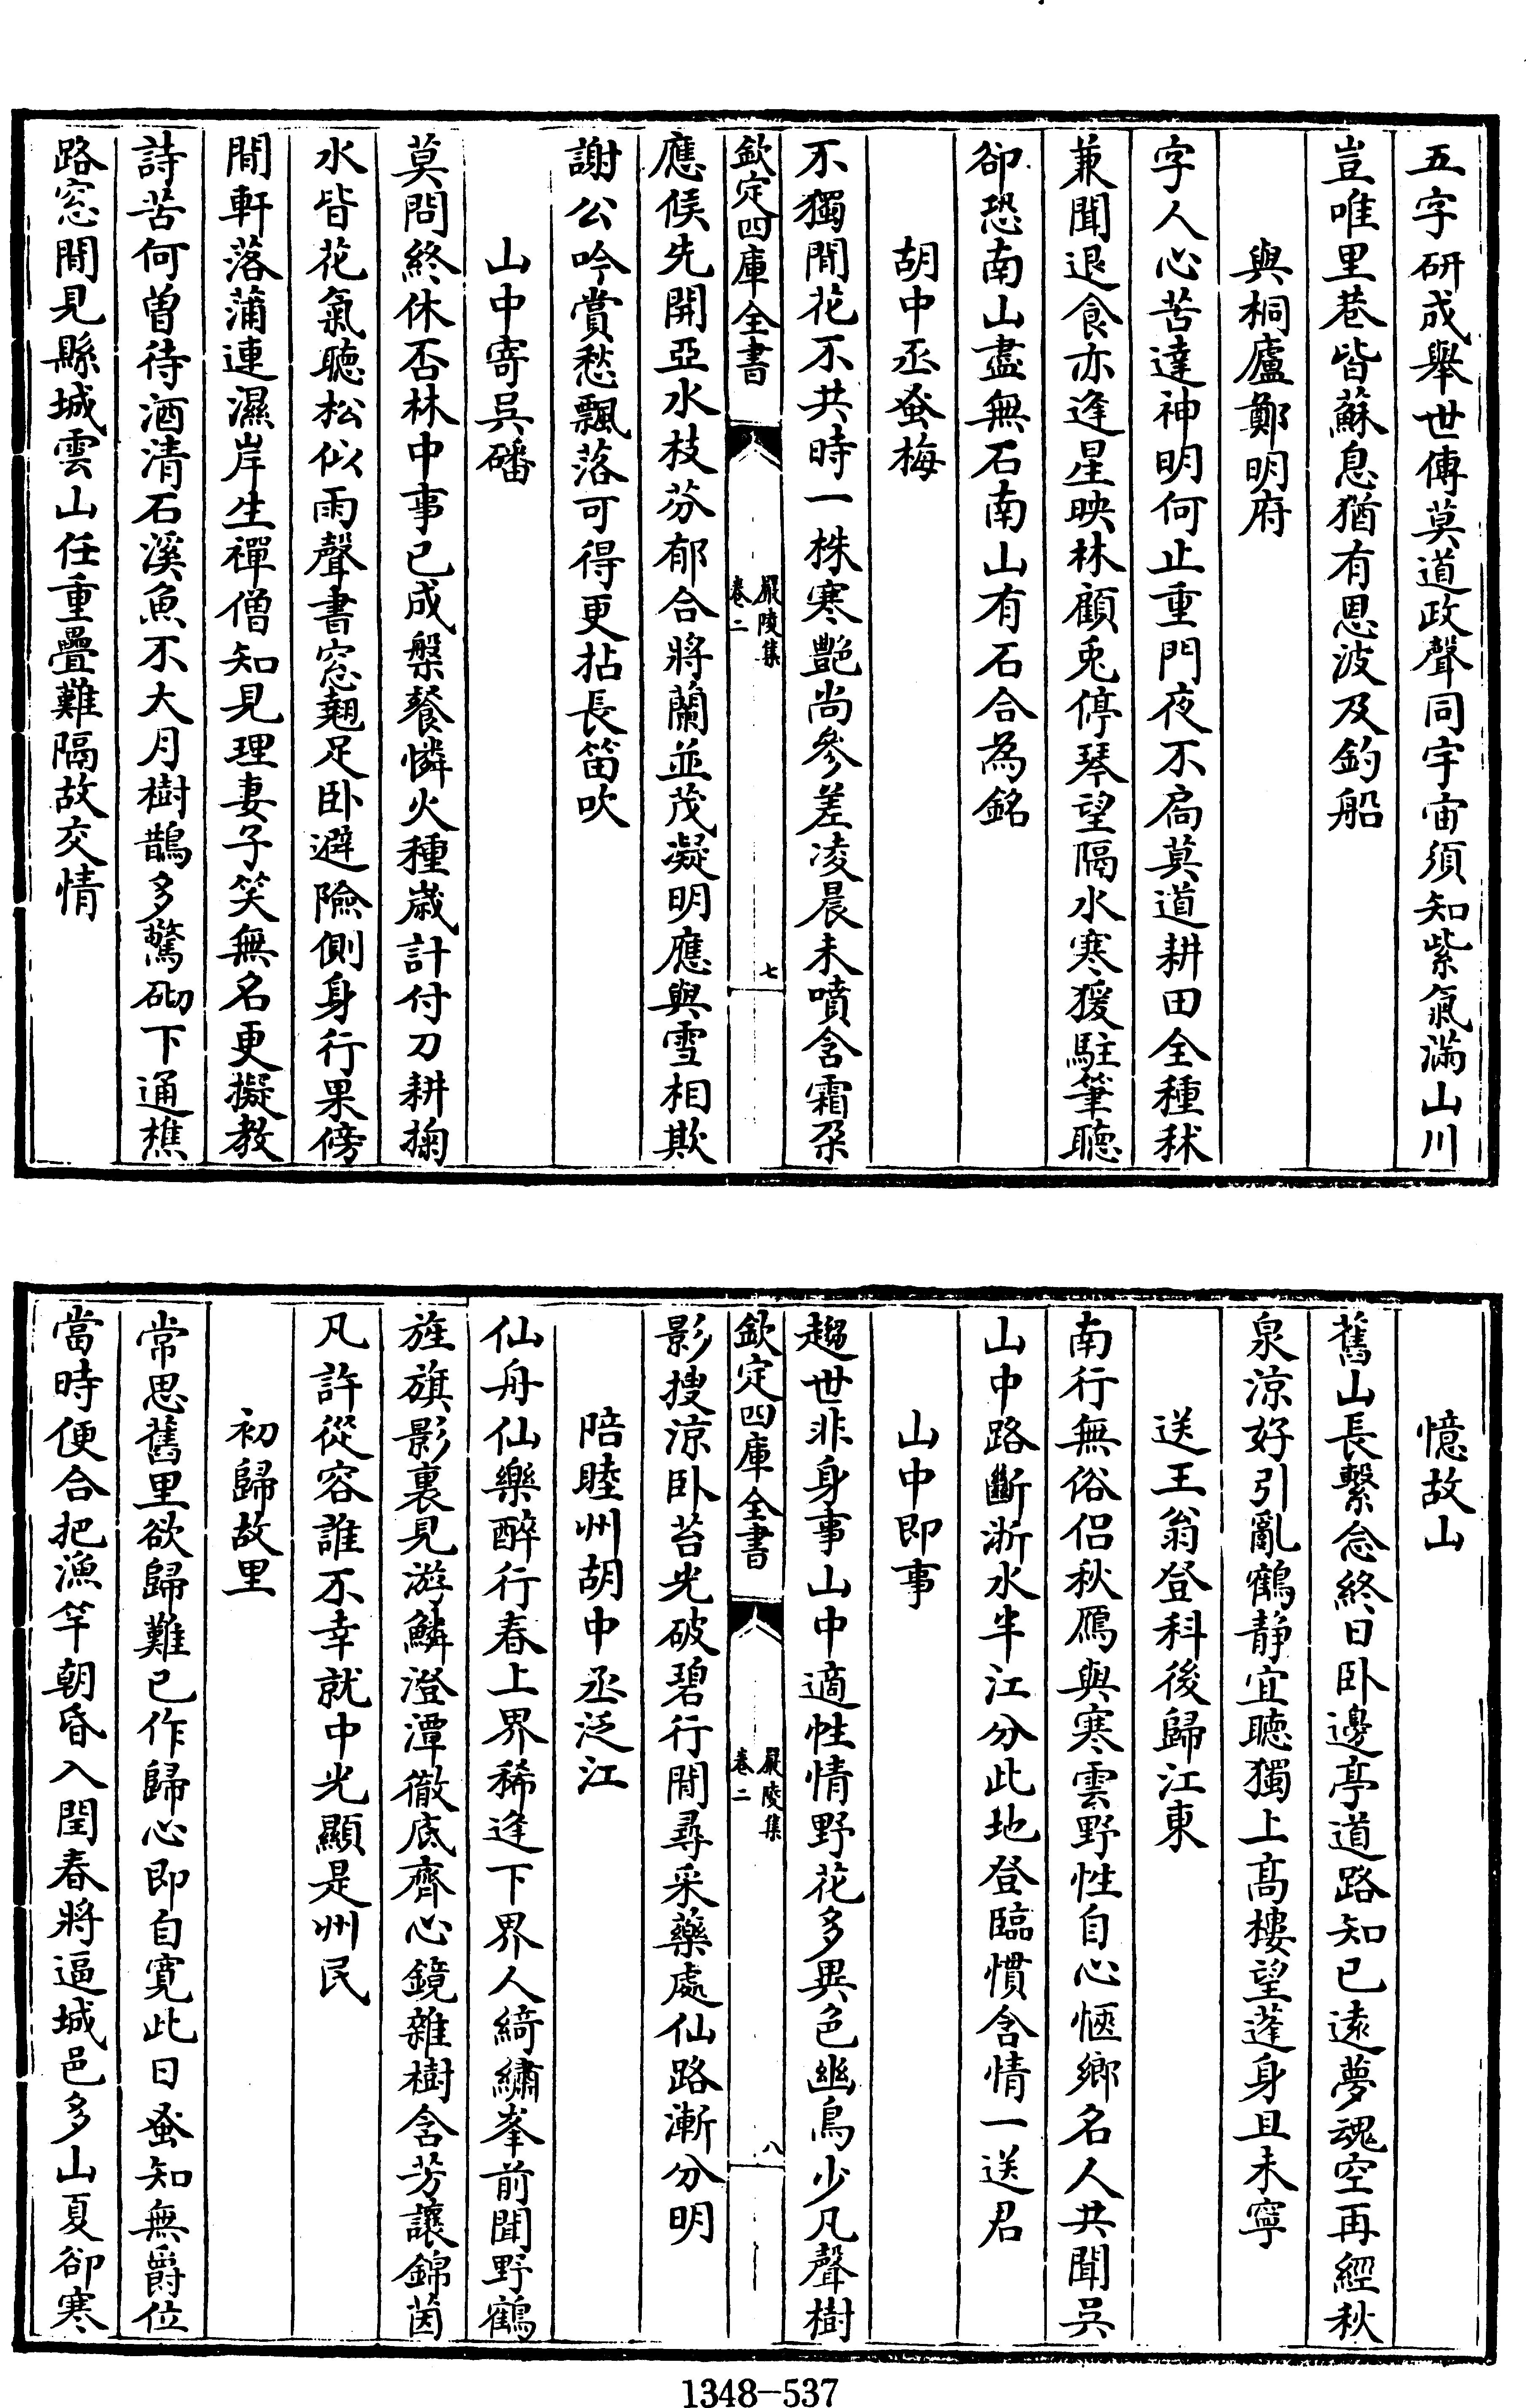 五字研成舉世傳莫道政聲同宇宙須知紫氣滿山川
豈唯里巷皆蘇息猶有恩波及釣船
與桐廬鄭明府
字人心苦達神明何止重門夜不扃莫道耕田全種秫
兼聞退食亦逢星映林顧兎停琴望隔水寒猨駐筆聽
卻恐南山盡無石南山有石合為銘
胡中丞蚤梅
不獨閒花不共時一株寒艷尚參差凌晨未噴含霜朶
欽定四庫全書
嚴陵集
卷二
七
應候先開亞水枝芬郁合將蘭並茂凝明應與雪相欺
謝公吟賞愁飄落可得更拈長笛吹
山中寄吳磻
莫問終休否林中事已成槃餐憐火種歲計付刀耕掬
水皆花氣聽松似雨聲書窓翹足卧避險側身行果傍
閒軒落蒲連濕岸生禪僧知見理妻子笑無名更擬教
詩苦何曽待酒清石溪魚不大月樹鵲多驚砌下通樵
路窓閒見縣城雲山任重疊難隔故交情
憶故山
舊山長繫念終日卧邊亭道路知已遠夢魂空再經秋
泉涼好引亂鶴靜宜聽獨上高樓望蓬身且未寧
送王翁登科後歸江東
南行無俗侣秋鴈與寒雲野性自心愜鄉名人共聞吳
山中路斷浙水半江分此地登臨慣含情一送君
山中即事
趨世非身事山中適性情野花多異色幽鳥少凡聲樹
欽定四庫全書
嚴陵集
卷二
八
影搜涼卧苔光破碧行閒尋采藥處仙路漸分明
陪睦州胡中丞泛江
仙舟仙樂醉行春上界稀逢下界人綺繡峯前聞野鶴
旌旗影裏見游鱗澄潭徹底齊心鏡雜樹含芳讓錦茵
凡許從容誰不幸就中光顯是州民
初歸故里
常思舊里欲歸難已作歸心即自寛此日蚤知無爵位
當時便合把漁竿朝昏入閏春將逼城邑多山夏卻寒
1348-537